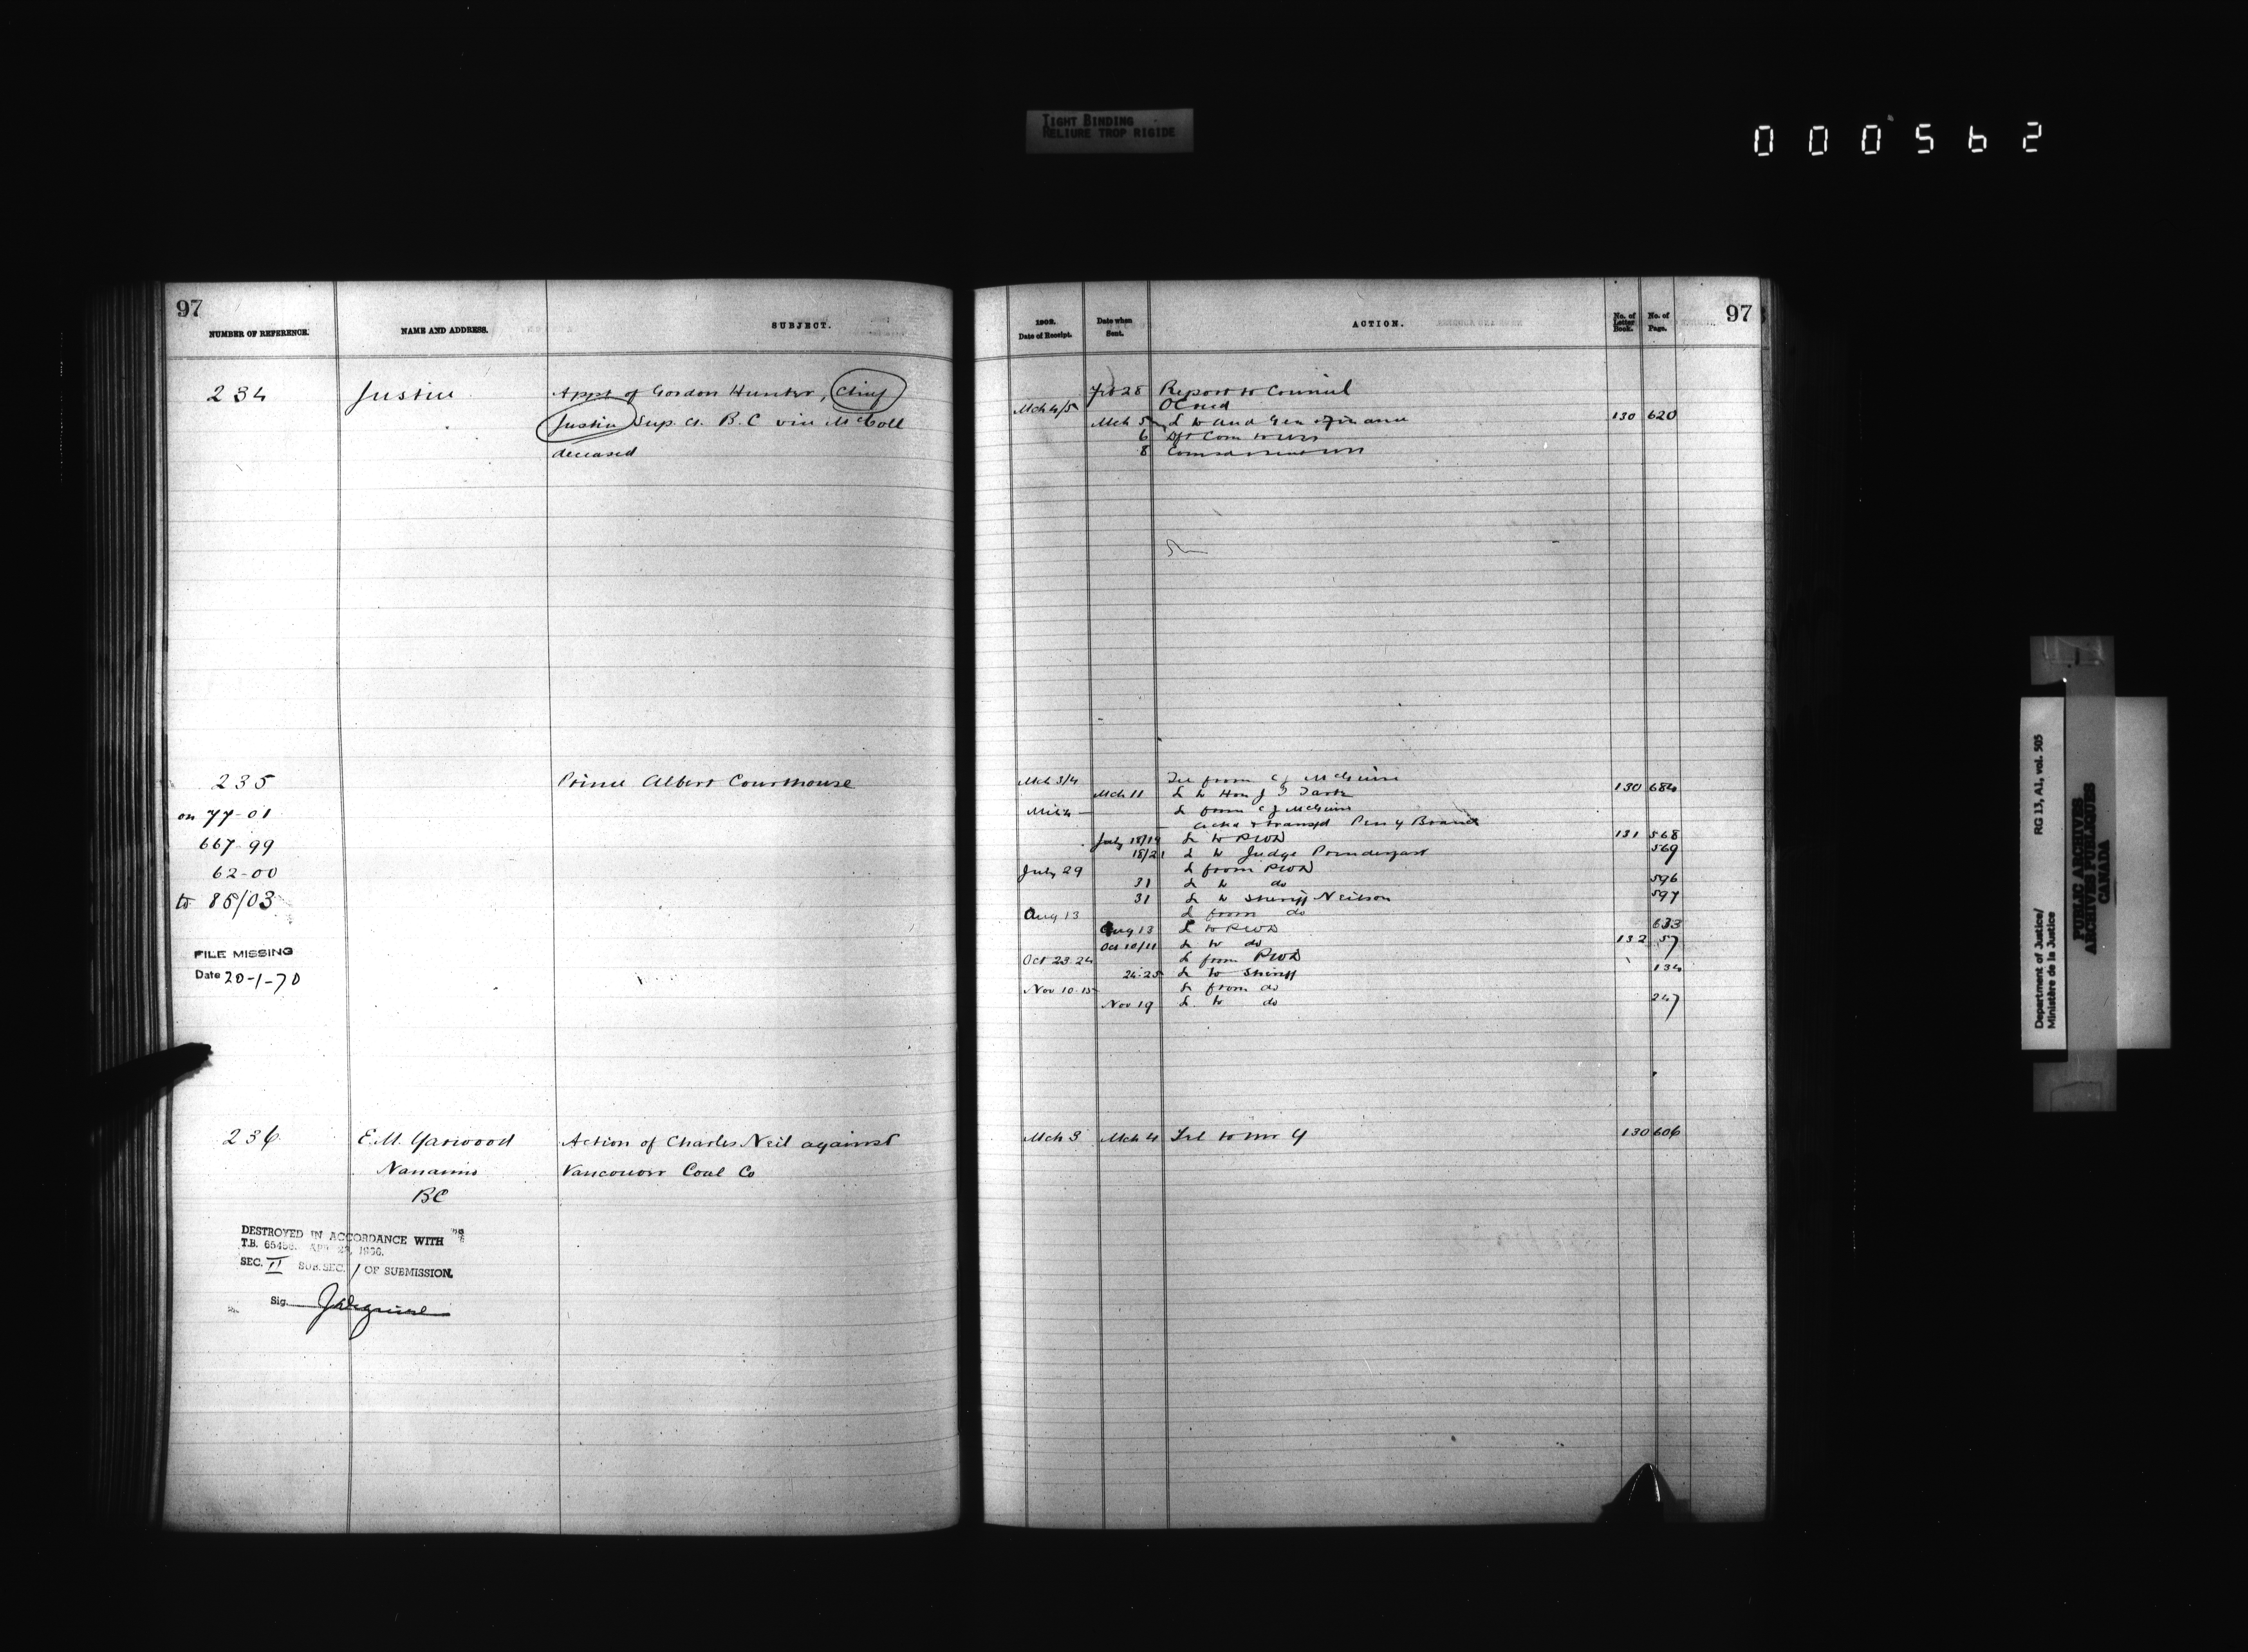 TIGHT BINDING
RELIURE TROP RIGIDE
000562
97
NUMBER OF REFERENCE.
NAME AND ADDRESS.
SUBJECT.
234
Justice
Appt of Gordon Hunter, Chief
Justice Sup. Ct. B.C vice McColl
deceased
235
Prince Albert Courthouse
on 77-01
667-99
62-00
to 85/03
FILE MISSING
Date 20-1-70
236
E.M. Yarwood
Action of Charles Neil against
Nanaimo
Vancouver Coal Co
BC
DESTROYED IN ACCORDANCE WITH
T.B. 65456
SEC. II SUB.SEC. 1 OF SUBMISSION.
Sig.
1902.
Date of Receipt.
Date when
Sent.
ACTION.
No. of
Letter
Book.
No. of
Page.
97
Feb 28 Report to Council
Mch 4/5 OC recd
Mch 5 L to Aud Gen & Finance 130 620
6 Dft Com to
8
Mch 3/4 Tel from CJ McGuire
Mch 11 L to Hon J I Tarte 130 684
L from CJ McGuire
Ackd & transfd Peny Branch
July 18/19 L to PWD 131 568
18/21 L to Judge Prendergast 569
July 29 L from PWD
31 L to do 596
31 L to Sheriff Neilson 597
Aug 13 L from do
Aug 13 L to PWD 633
Oct 10/11 L to do 132 57
Oct 23-24 L from PWD
24-25 L to Sheriff 134
Nov 10-15 L from do
Nov 19 L to do 247
Mch 3 Mch 4 Tel to Mr Y 130 606
Department of Justice/
Ministère de la Justice
RG 13, A1, vol. 505
PUBLIC ARCHIVES
ARCHIVES PUBLIQUES
CANADA